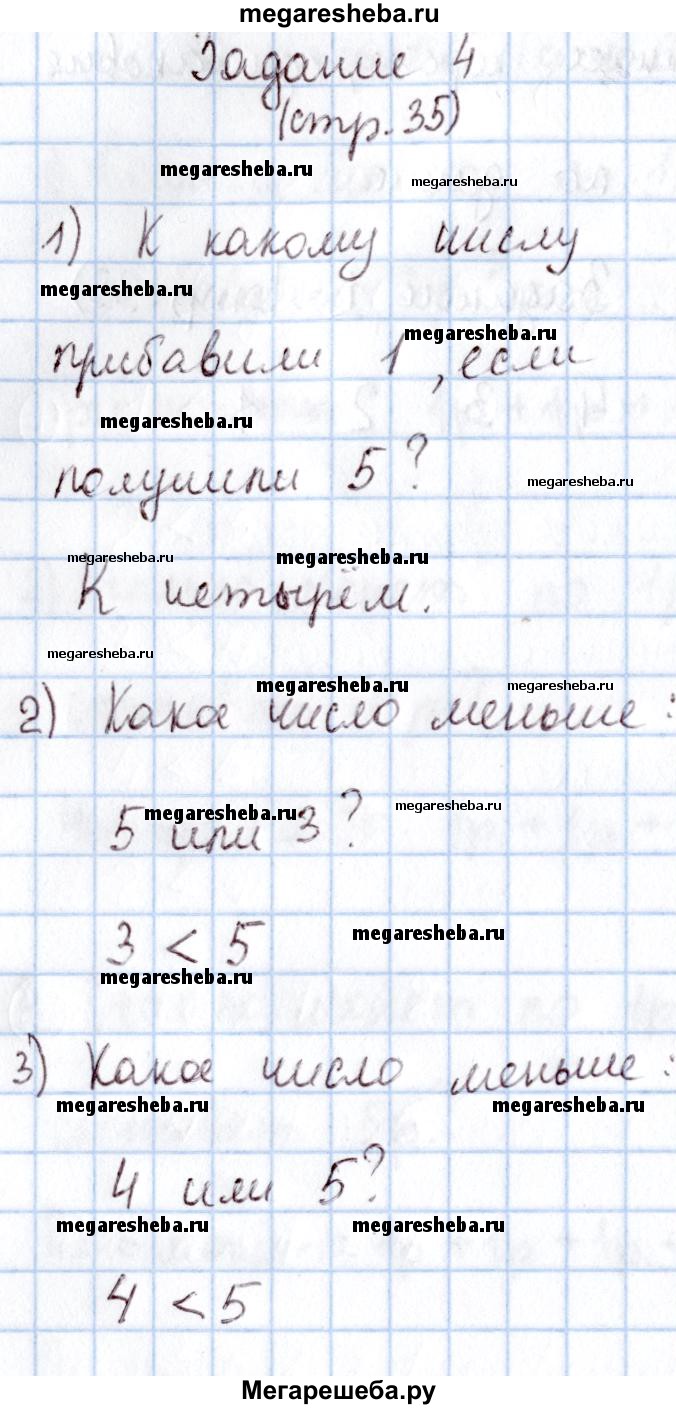 megaresheba.ru
Задание 4
(стр. 35)
megaresheba.ru megaresheba.ru
1) К какому числу
megaresheba.ru
megaresheba.ru
прибавили 1, если
megaresheba.ru
получили 5?
megaresheba.ru
megaresheba.ru megaresheba.ru
К четырём.
megaresheba.ru
megaresheba.ru megaresheba.ru
2) Какое число меньше:
megaresheba.ru megaresheba.ru
5 или 3?
3 < 5
megaresheba.ru
megaresheba.ru
3) Какое число меньше:
megaresheba.ru megaresheba.ru
4 или 5?
megaresheba.ru megaresheba.ru
4 < 5
Мегарешеба.ру